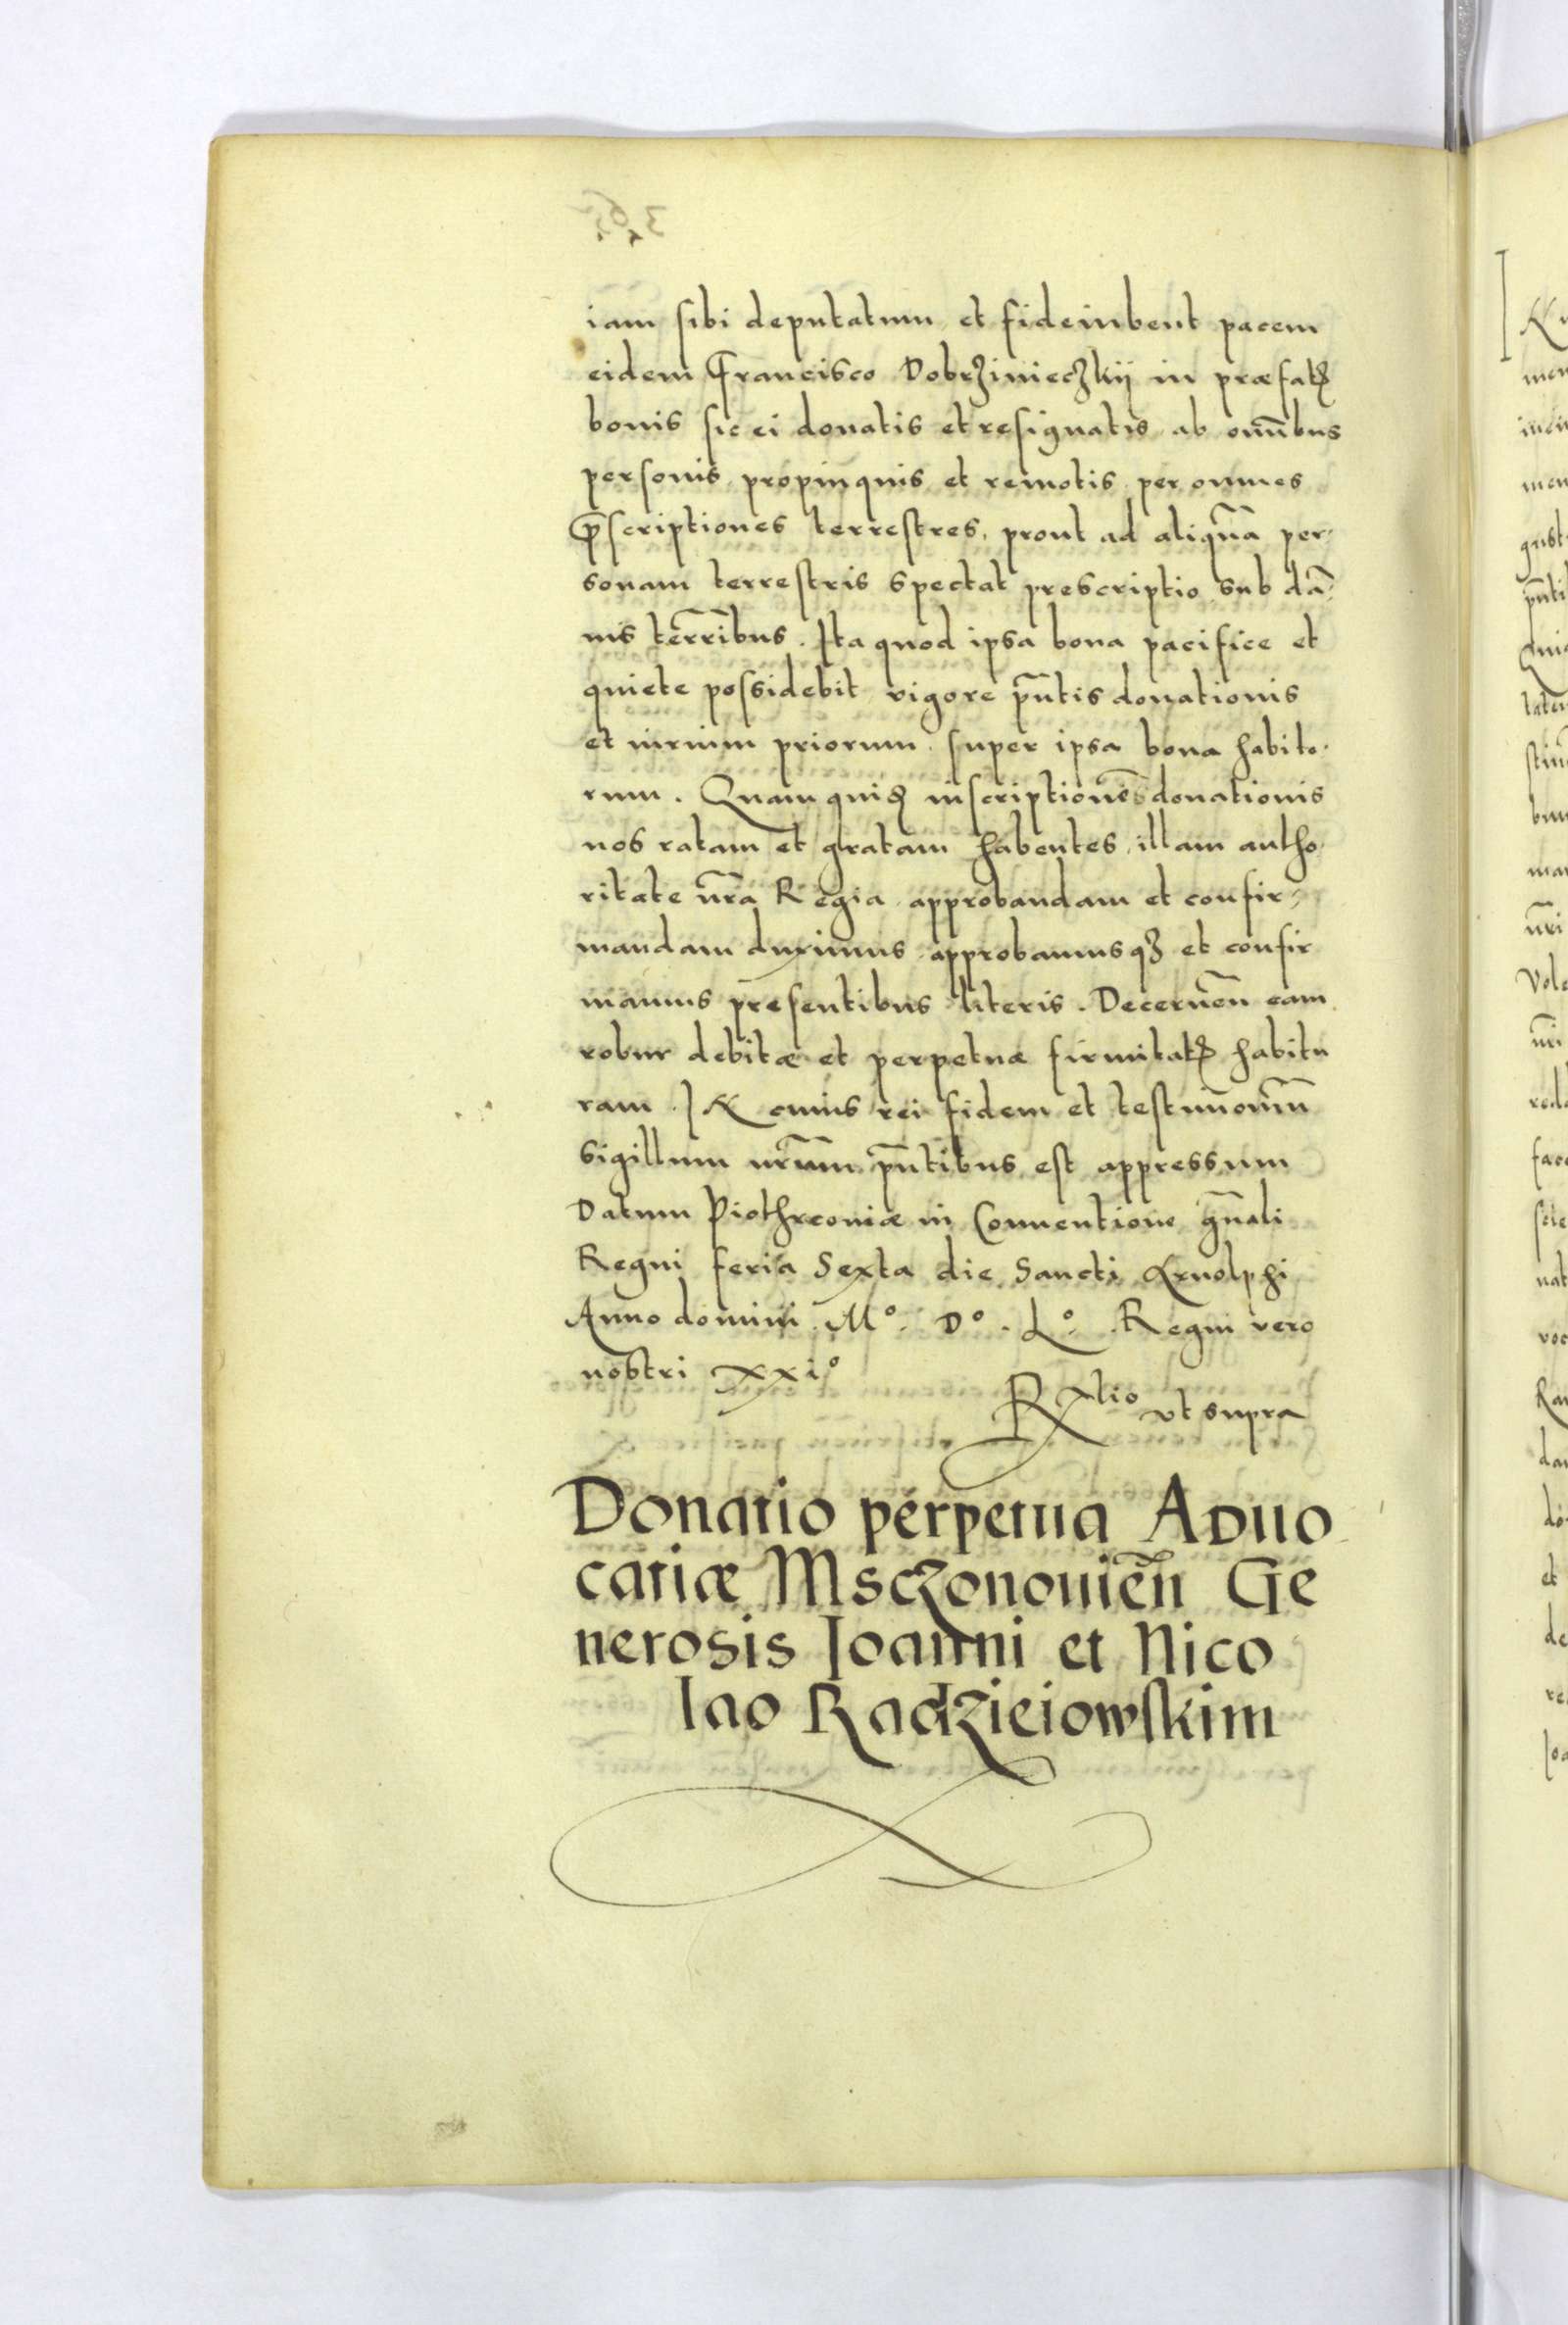 iam sibi deputatum et fideiubent pacem
eidem Francisco Dobrzinieczkij in præfatꝫ
bonis sic ei donatis et resignatis ab om̄ibus
personis propinquis et remotis per omnes
p̄scriptiones terrestres, prout ad aliquā per
sonam terrestris spectat prescriptio sub dā-
nis terr̄ibus. Ita quod ipsa bona pacifice et
quiete possidebit vigore pn̄tis donationis
et iurium priorum super ipsa bona habito
rum. Quam quidꝫ inscriptionē donationis
nos ratam et gratam habentes, illam autho
ritate nr̄a Regia approbandam et confir-
mandam duximus approbamusqꝫ et confir
mamus presentibus literis. Decernen̄ eam
robur debitæ et perpetuæ firmitatꝫ habitu
ram. IN cuius rei fidem et testimoniū
sigillum nr̄um pn̄tibus est appressum
Datum Piothrcouiæ in Conuentione gn̄ali
Regni feria Sexta die Sancti Arnolphi
Anno domini M°. D°. L°. Regni vero
nostri xxi°
Rxlio vt supra
Donatio perpetua Aduo
catiæ Msczonouien̄ Ge
nerosis Ioanni et Nico
lao Radzieiowskim